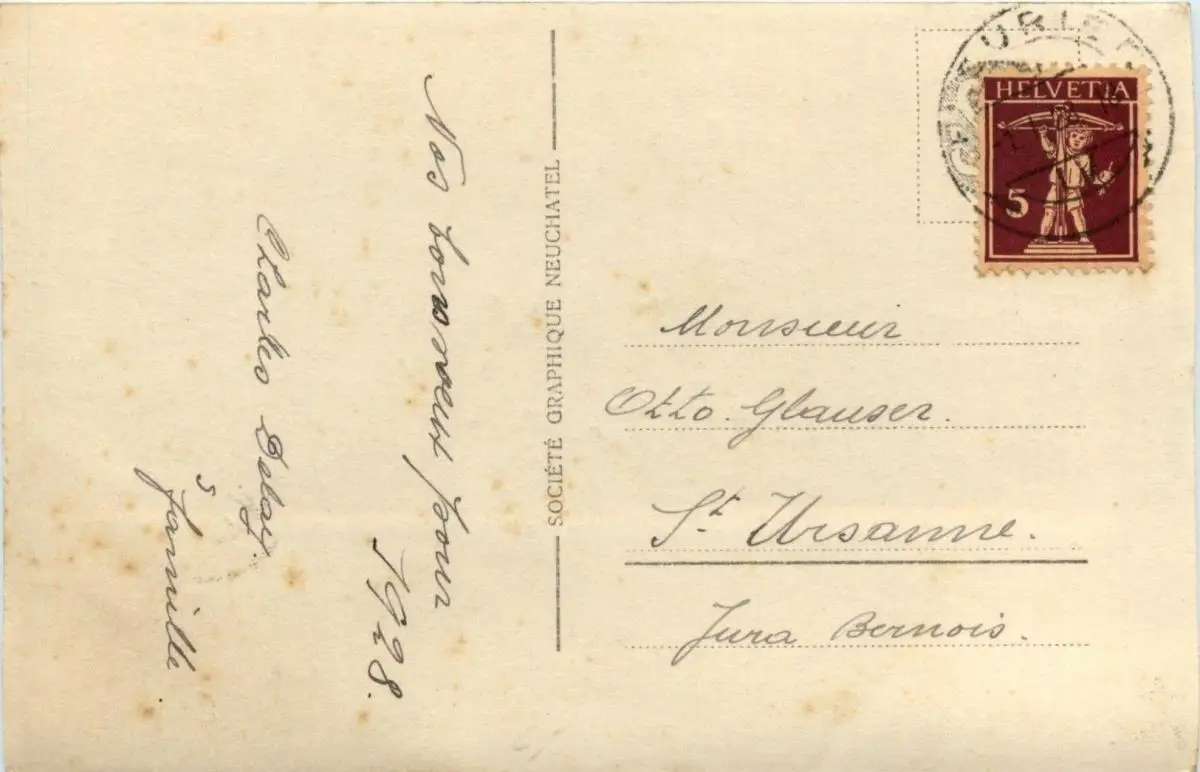 Nos bons vœux pour
1928.
Charles
& famille
SOCIÉTÉ GRAPHIQUE NEUCHATEL
HELVETIA
5
Monsieur
Otto. Glauser.
St. Ursanne.
Jura Bernois.